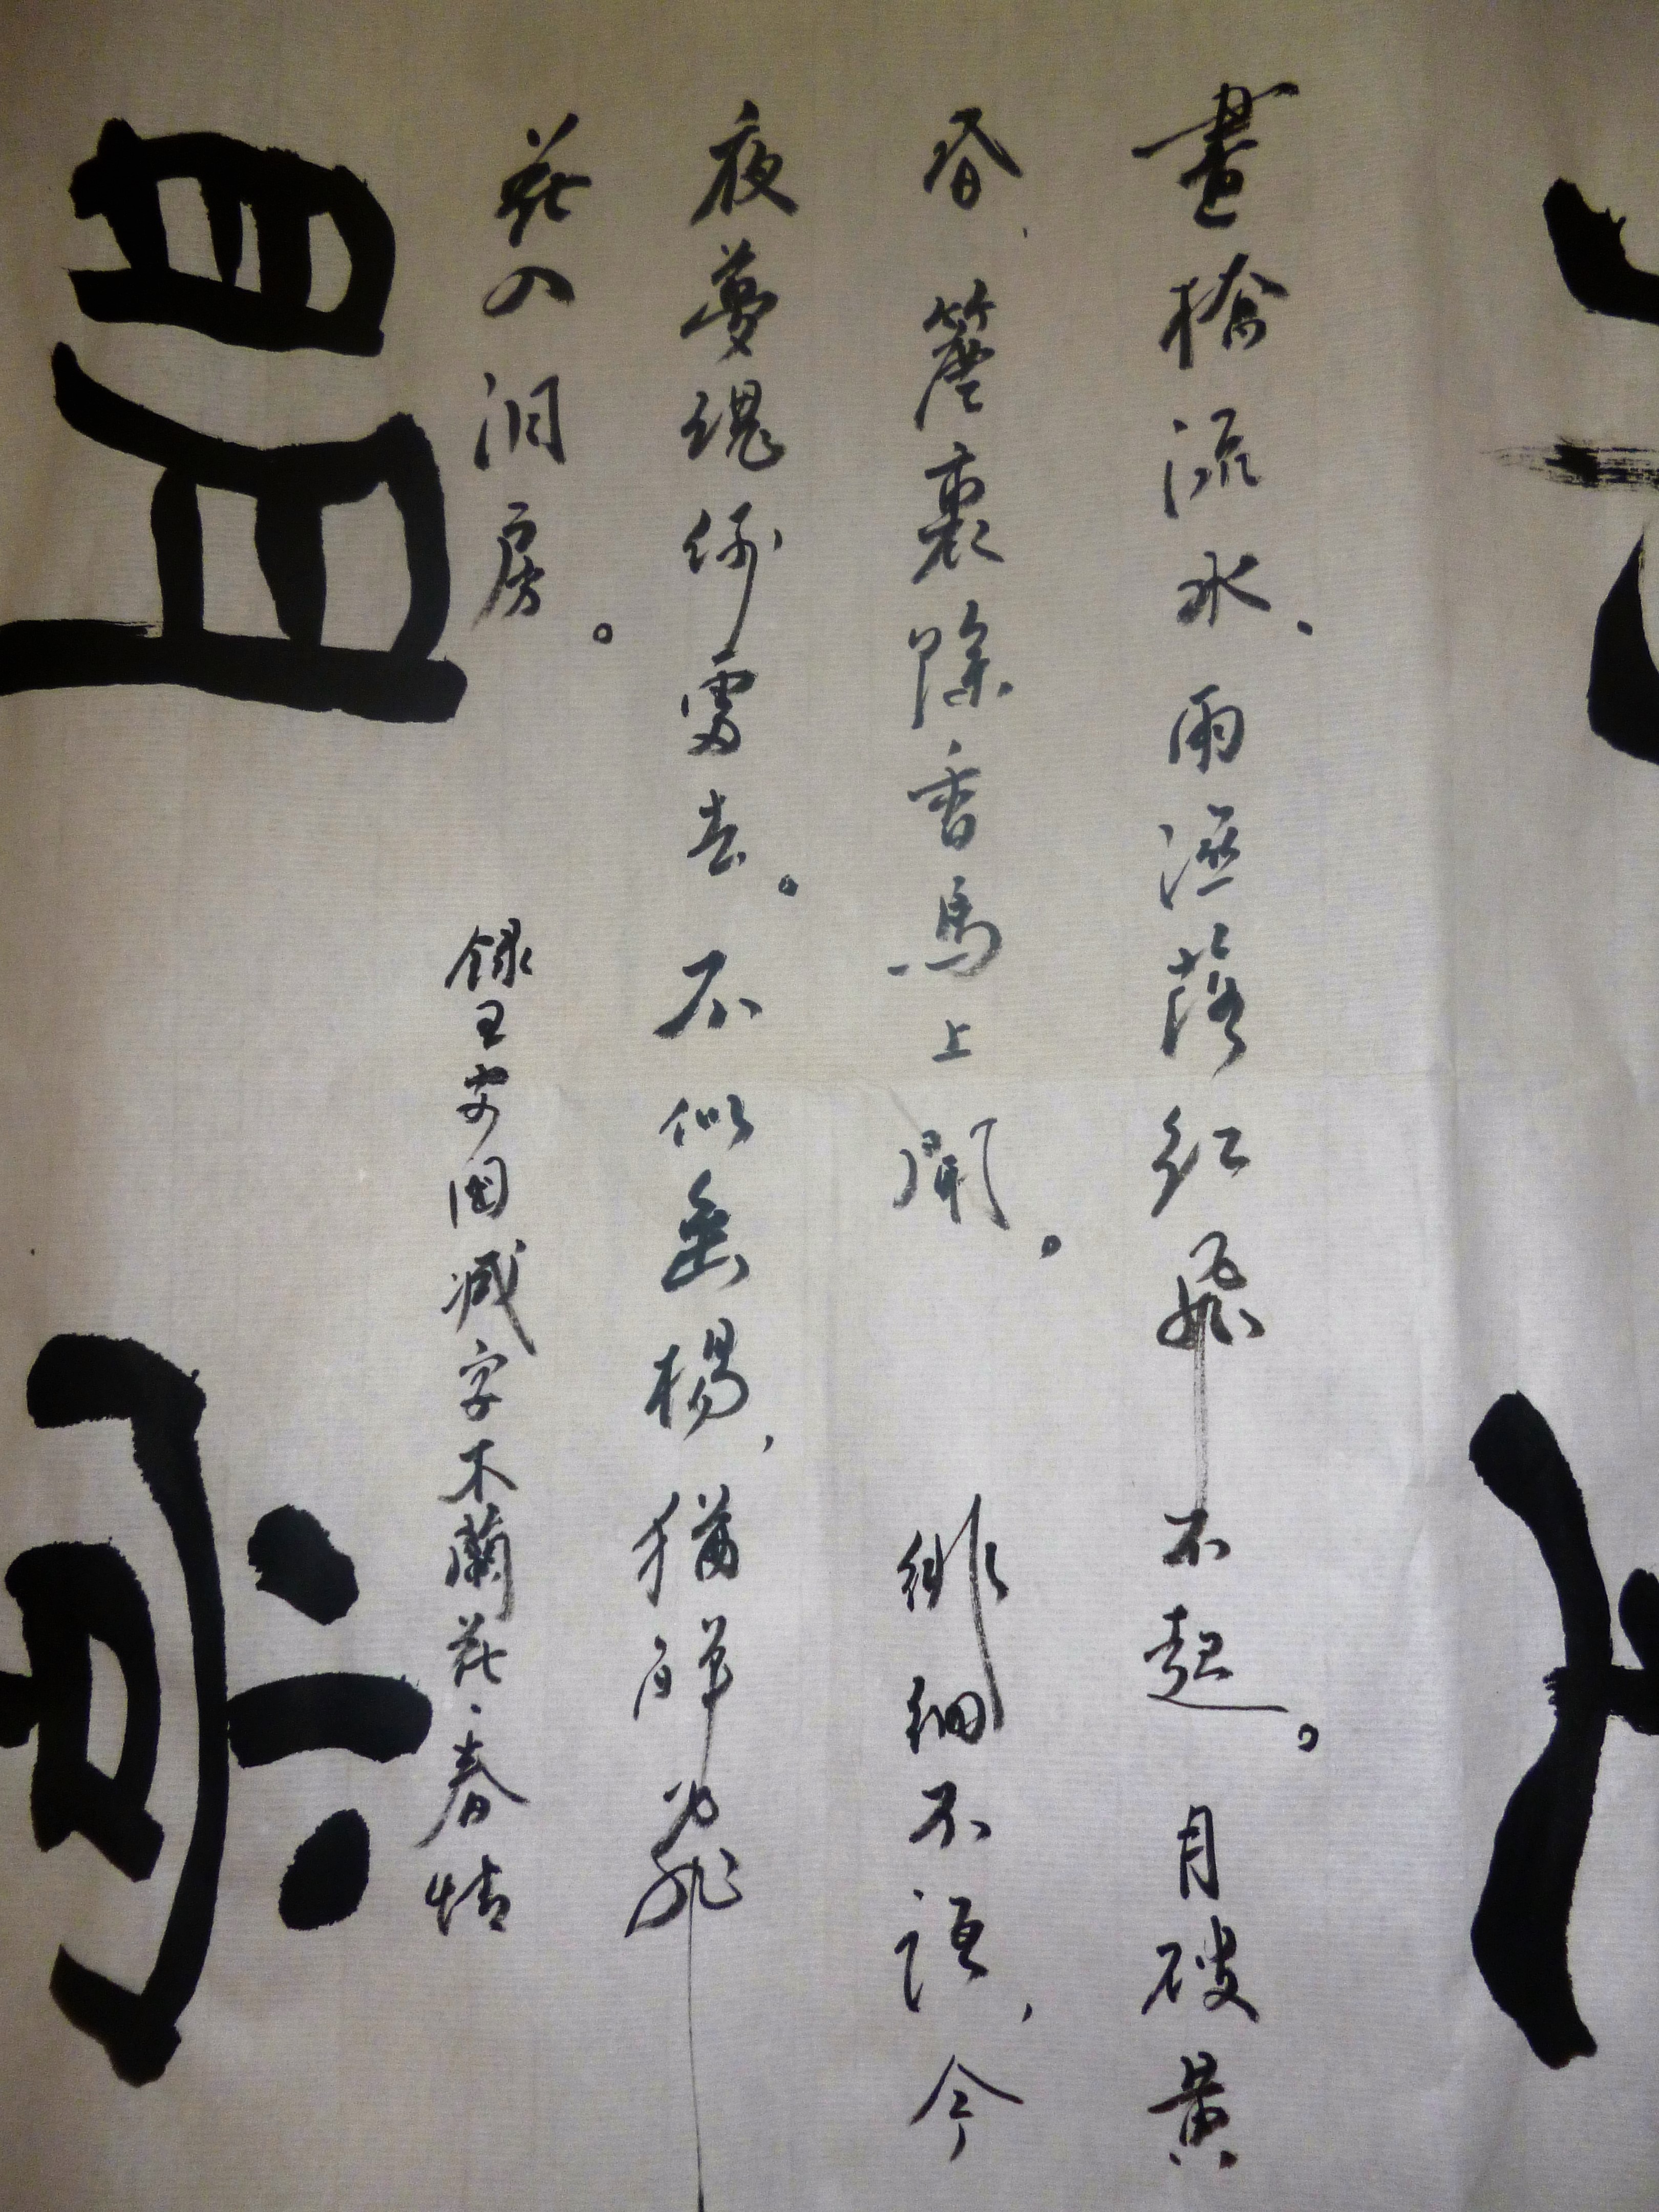 畫橋流水、雨溼落紅飛不起。月破黃
昏、簾裏餘香馬上聞。徘徊不語，今
夜夢魂何處去。不似垂楊，猶解飛
花入洞房。
錄王安国減字木蘭花·春情